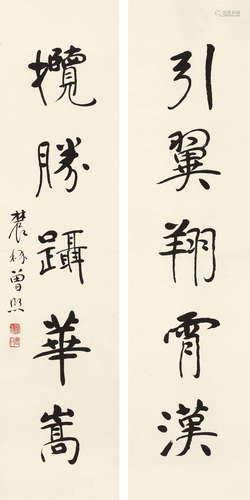 引翼翔霄漢
攬勝躡華嵩
農髯曾熙